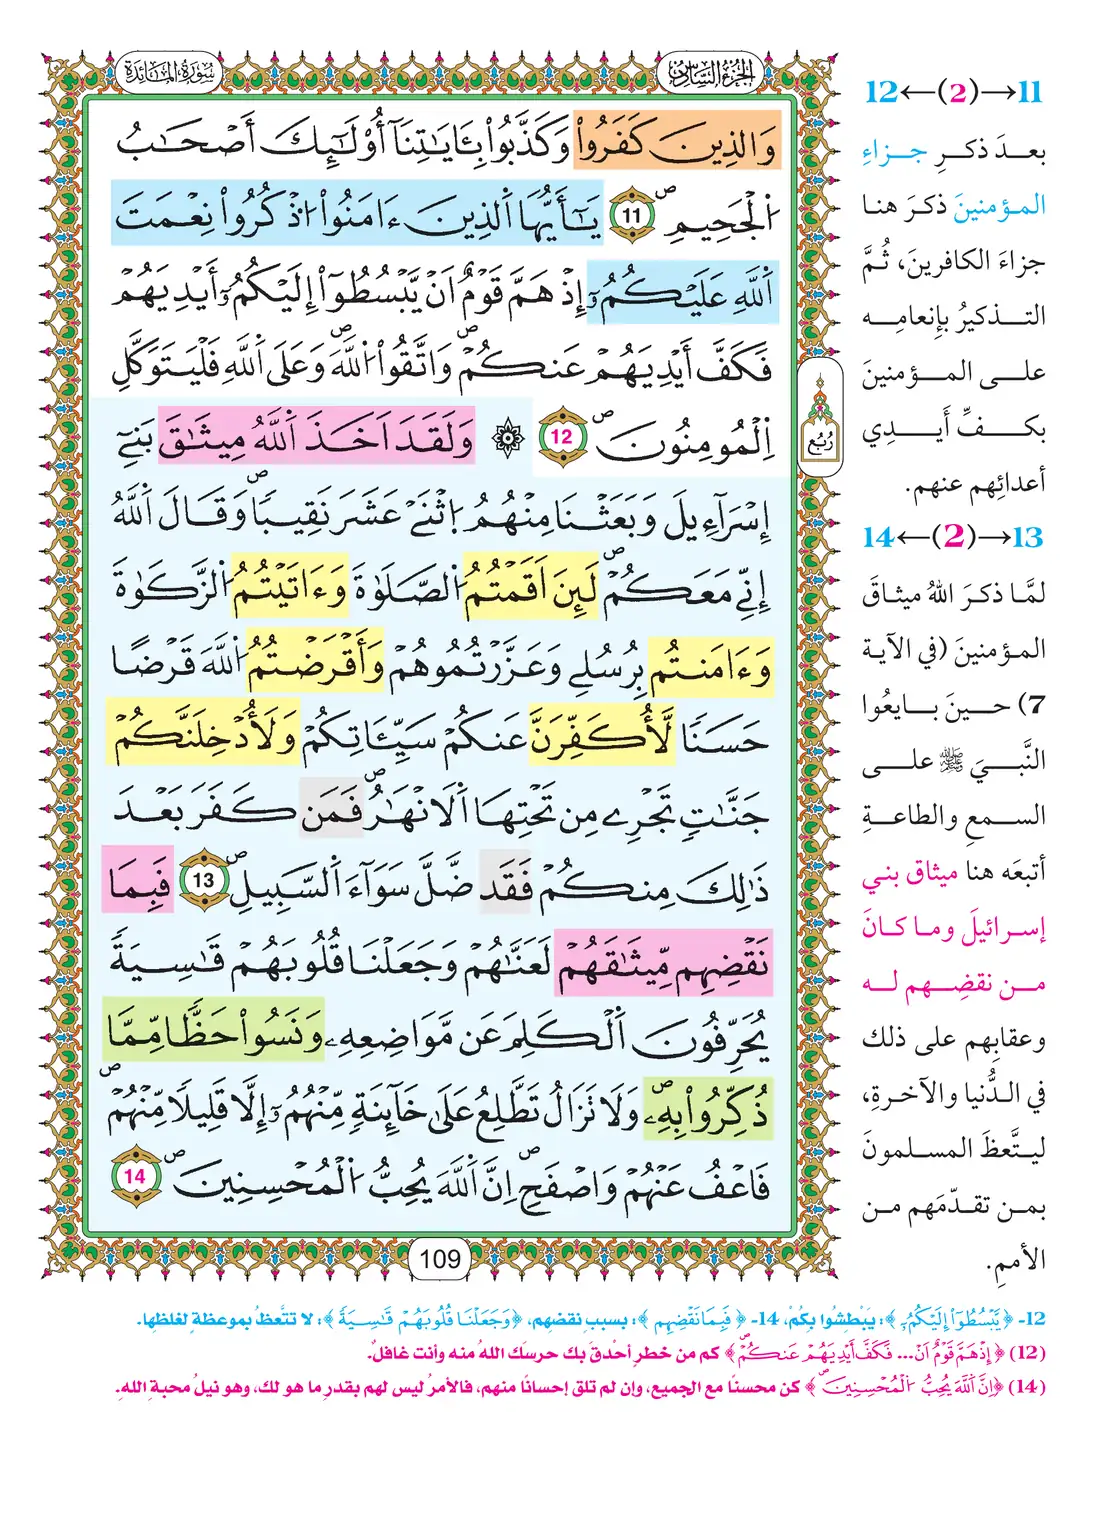 الجزء السادس
سورة المائدة
وَالذِينَ كَفَرُواْ وَكَذَّبُواْ بِـَٔايَٰتِنَآ أُوْلَٰٓئِكَ أَصْحَٰبُ
اُ۬لْجَحِيمِۖ 11 يَٰٓأَيُّهَا اَ۬لذِينَ ءَامَنُواْ اُ۟ذْكُرُواْ نِعْمَتَ
اَ۬للَّهِ عَلَيْكُمُۥٓ إِذْ هَمَّ قَوْمٌ اَنْ يَّبْسُطُوٓاْ إِلَيْكُمُۥٓ أَيْدِيَهُمْ
فَكَفَّ أَيْدِيَهُمْ عَنكُمْۖ وَاتَّقُواْ اُ۬للَّهَۖ وَعَلَى اَ۬للَّهِ فَلْيَتَوَكَّلِ
اِ۬لْمُومِنُونَۖ 12 ۞ وَلَقَدَ اَخَذَ اَ۬للَّهُ مِيثَٰقَ بَنِےٓ
إِسْرَآءِيلَ وَبَعَثْنَا مِنْهُمُ اُ۪ثْنَےْ عَشَرَ نَقِيباٗۖ وَقَالَ اَ۬للَّهُ
إِنِّے مَعَكُمْۖ لَئِنَ اَقَمْتُمُ اُ۬لصَّلَوٰةَ وَءَاتَيْتُمُ اُ۬لزَّكَوٰةَ
وَءَامَنتُم بِرُسُلِے وَعَزَّرْتُمُوهُمْ وَأَقْرَضْتُمُ اُ۬للَّهَ قَرْضاً
حَسَناٗ لَّأُكَفِّرَنَّ عَنكُمْ سَيِّـَٔاتِكُمْ وَلَأُدْخِلَنَّكُمْ
جَنَّٰتٖ تَجْرِے مِن تَحْتِهَا اَ۬لَانْهَٰرُۖ فَمَن كَفَرَ بَعْدَ
ذَٰلِكَ مِنكُمْ فَقَد ضَّلَّ سَوَآءَ اَ۬لسَّبِيلِۖ 13 فَبِمَا
نَقْضِهِم مِّيثَٰقَهُمْ لَعَنَّٰهُمْ وَجَعَلْنَا قُلُوبَهُمْ قَٰسِيَةٗ
يُحَرِّفُونَ اَ۬لْكَلِمَ عَن مَّوَاضِعِهِۦ وَنَسُواْ حَظّاٗ مِّمَّا
ذُكِّرُواْ بِهِۦۖ وَلَا تَزَالُ تَطَّلِعُ عَلَىٰ خَآئِنَةٖ مِّنْهُمُۥٓ إِلَّا قَلِيلاٗ مِّنْهُمْۖ
فَاعْفُ عَنْهُمْ وَاصْفَحِۖ اِنَّ اَ۬للَّهَ يُحِبُّ اُ۬لْمُحْسِنِينَۖ 14
ربع
109
11→(2)←12
بعدَ ذكرِ جزاءِ
المؤمنينَ ذكرَ هنا
جزاءَ الكافرينَ، ثُمَّ
التذكيرُ بإنعامِه
على المؤمنينَ
بكفِّ أيدِي
أعدائِهم عنهم.
13→(2)←14
لمَّا ذكرَ اللهُ ميثاقَ
المؤمنينَ (في الآية
7) حينَ بايعُوا
النَّبيَ ﷺ على
السمعِ والطاعةِ
أتبعَه هنا ميثاق بني
إسرائيلَ وما كانَ
من نقضِهم له
وعقابِهم على ذلك
في الدُّنيا والآخرةِ،
ليتَّعظَ المسلمونَ
بمن تقدّمَهم من
الأممِ.
12- ﴿يَّبْسُطُوٓاْ إِلَيْكُمُۥٓ﴾: يَبْطِشُوا بِكُمْ، 14- ﴿فَبِمَا نَقْضِهِم﴾: بسببِ نقضِهم، ﴿وَجَعَلْنَا قُلُوبَهُمْ قَٰسِيَةٗ﴾: لا تتَّعظُ بموعظةٍ لغلظِها.
(12) ﴿إِذْ هَمَّ قَوْمٌ اَنْ... فَكَفَّ أَيْدِيَهُمْ عَنكُمْۖ﴾ كم من خطرٍ أحْدقَ بك حرسَك اللهُ منه وأنت غافلٌ.
(14) ﴿اِنَّ اَ۬للَّهَ يُحِبُّ اُ۬لْمُحْسِنِينَۖ﴾ كن محسنًا مع الجميع، وإن لم تلق إحسانًا منهم، فالأمرُ ليس لهم بقدرِ ما هو لك، وهو نيلُ محبةِ اللهِ.